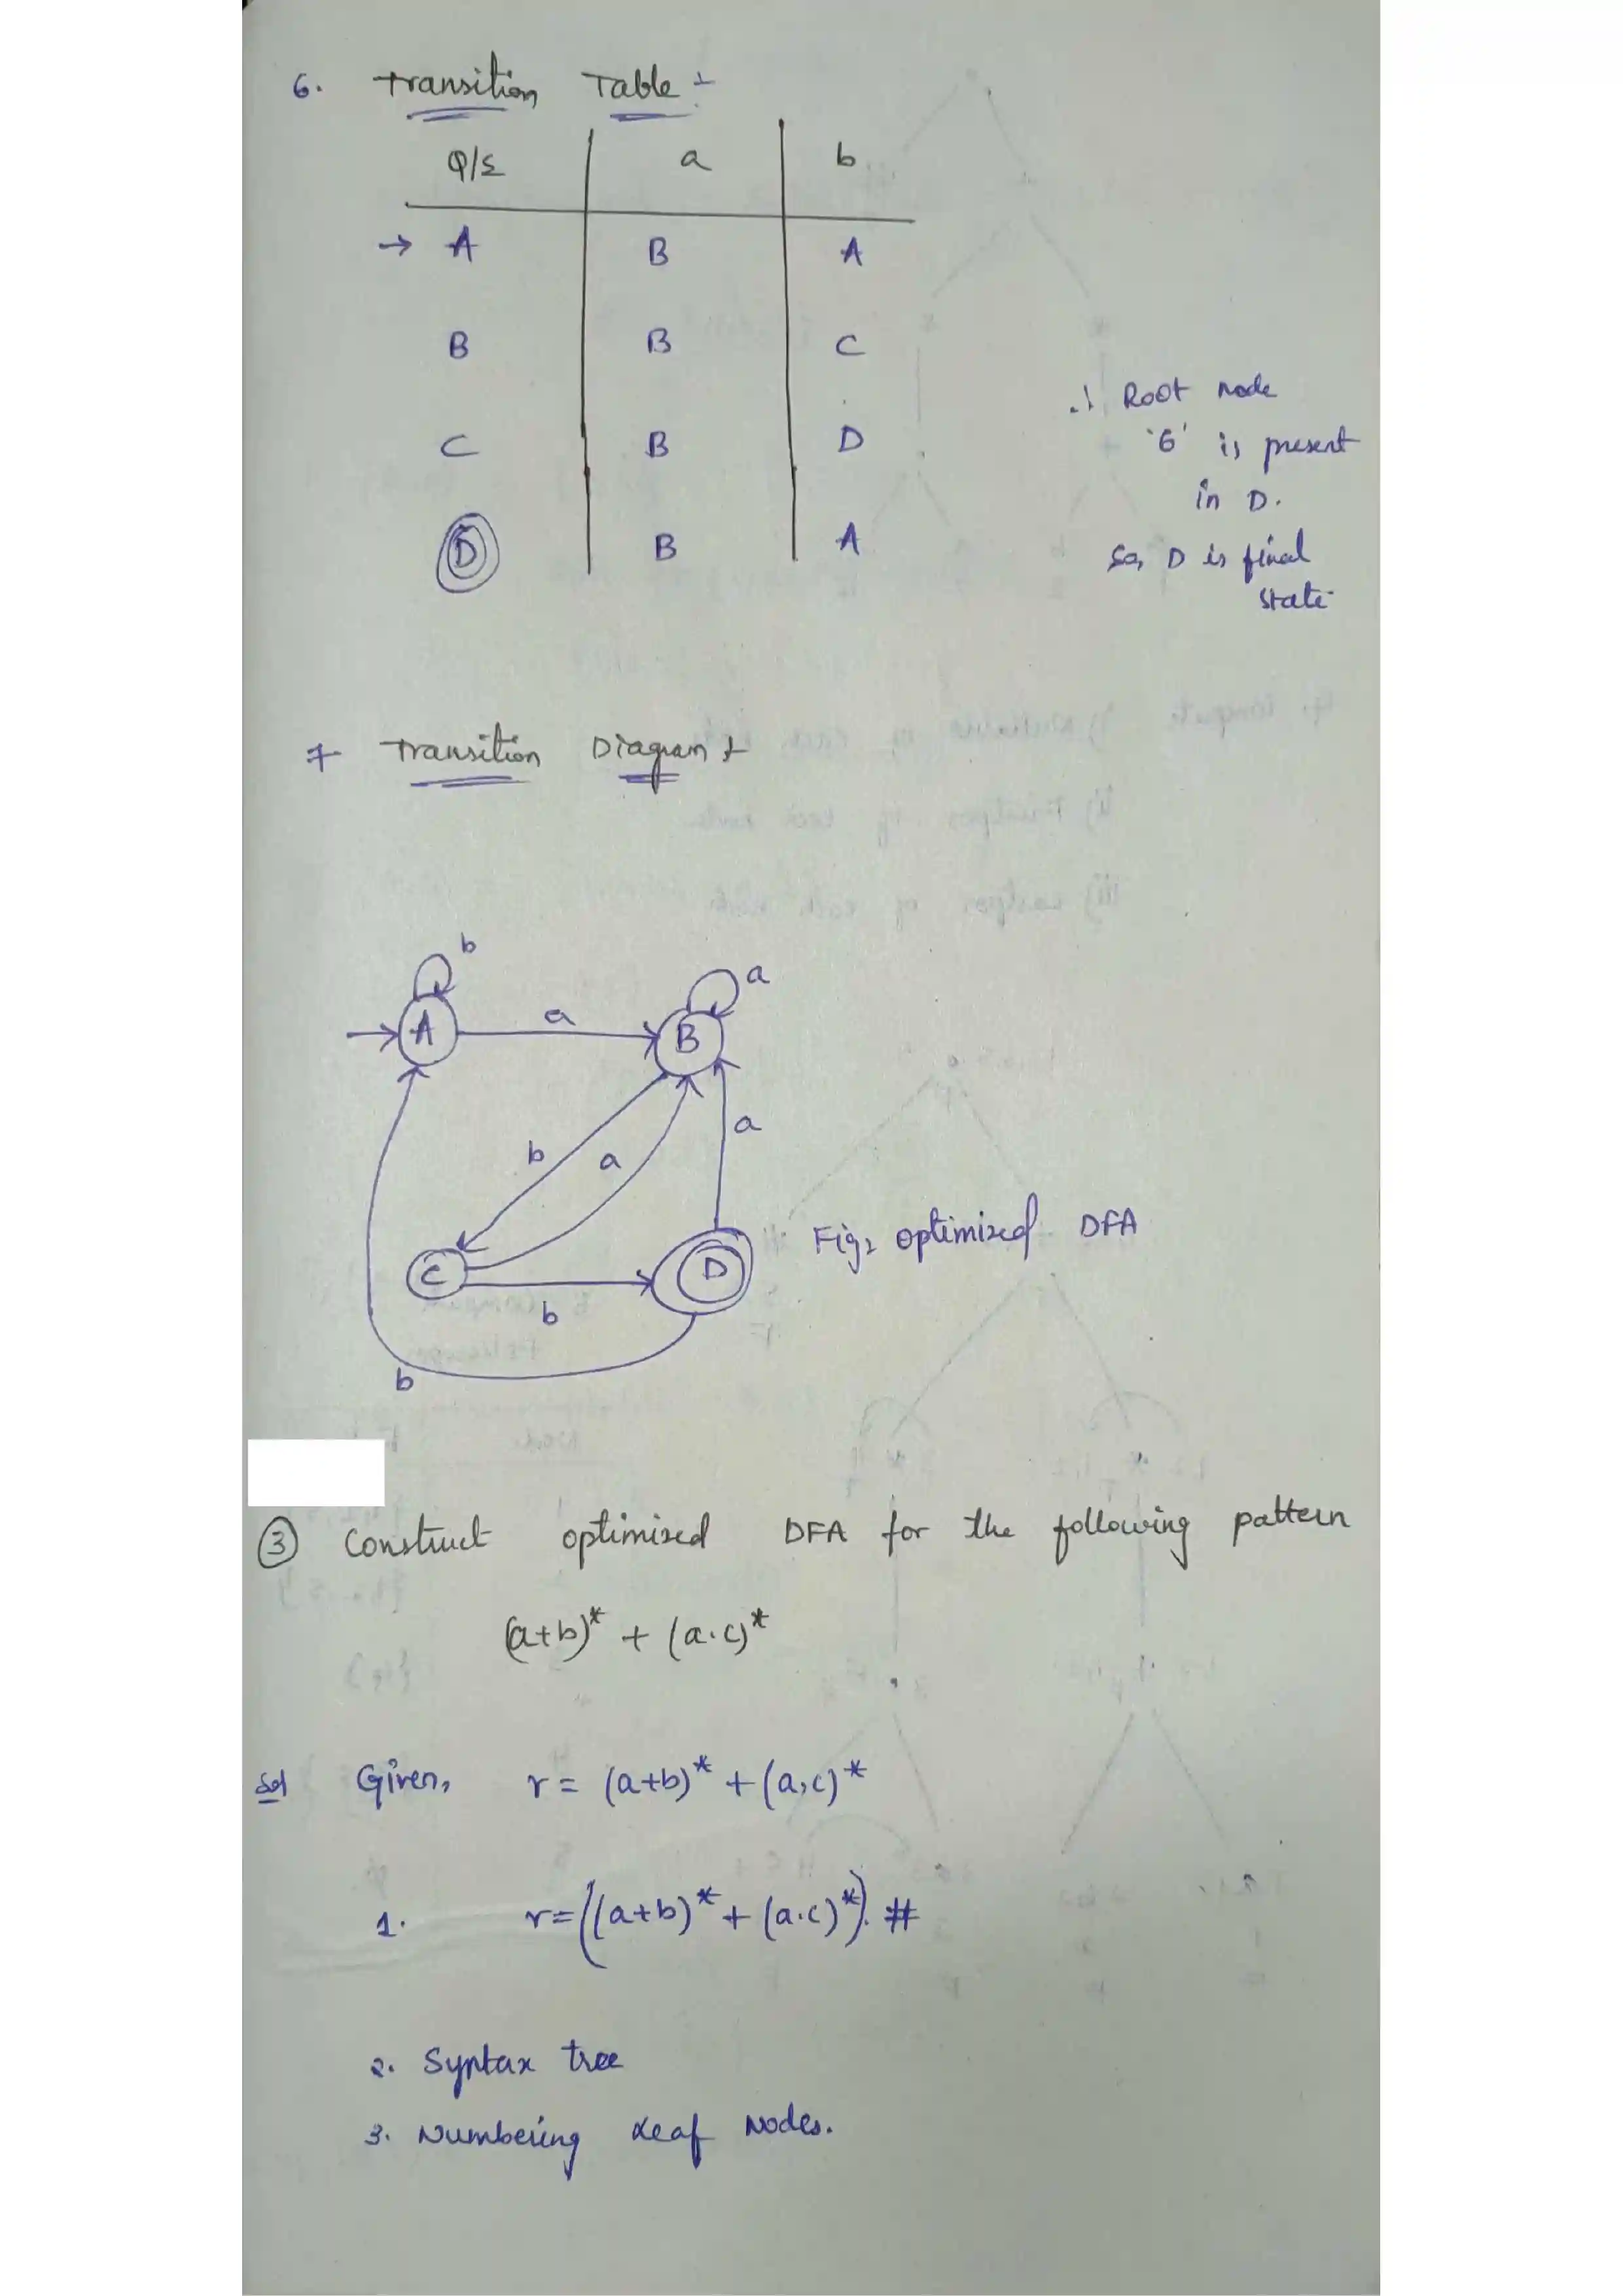 6. Transition Table :-
Q/Σ a b
→ A B A
B B C
C B D
D B A
∴ Root node
'6' is present
in D.
So, D is final
state
7. Transition Diagram :-
b
a
A a B
b a a
C b D
b
Fig: optimized DFA
③ Construct optimized DFA for the following pattern
(a+b)* + (a.c)*
Sol Given, r = (a+b)* + (a.c)*
1. r = ((a+b)* + (a.c)*). #
2. Syntax tree
3. Numbering Leaf Nodes.